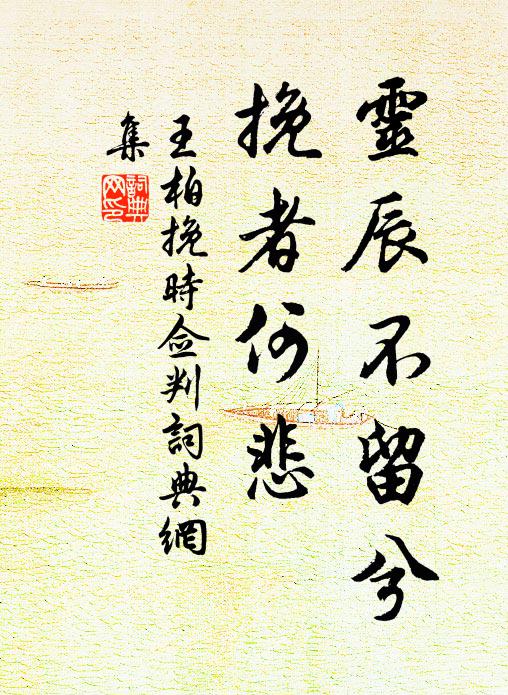 靈辰不留兮
挽者何悲
王柏挽時僉判詞典網
集
詞典
网印